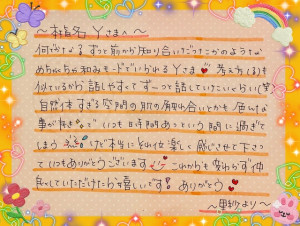 ～椎名 Yさまへ～
何だろう、ずっと前から知り合いだったかのような
めちゃくちゃ和みモードでいれるYさま♥ 考え方も
似ているから 話しやすくて ずーっと話していたいくらい(笑)
自然体すぎる空間の肌の触れ合いとかも 色んな
事が好きで いつも時間あっという間に過ぎて
しまう けど本当にその位楽しく感じさせて下さっ
ていつもありがとうございます これからも変わらず仲
良くしていただけたら嬉しいです! ありがとう♥
～里紗より～